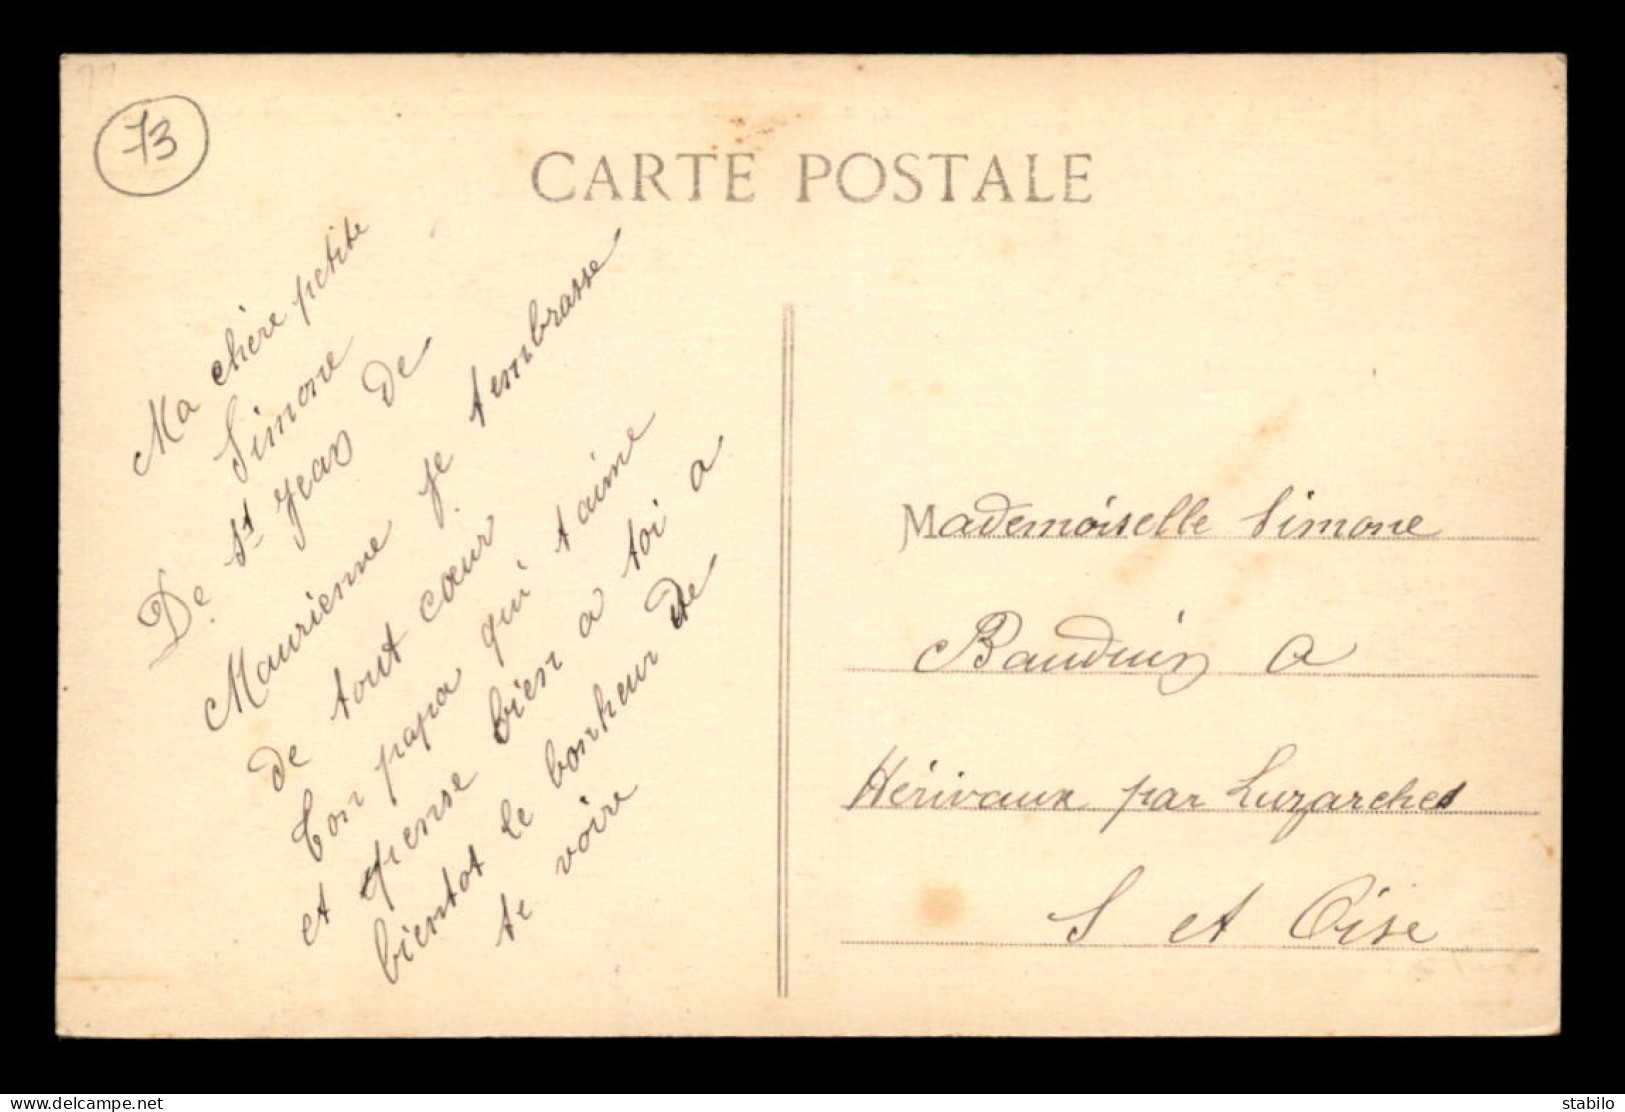 73
CARTE POSTALE
Ma chère petite
Simone
De St Jean de
Maurienne je t embrasse
de tout cœur
Ton papa qui t aime
et pense bien a toi a
bientot le bonheur de
te voire
Mademoiselle Simone
Bauduin a
Hérivaux par Luzarches
S et Oise
delcampe.net
stabilo